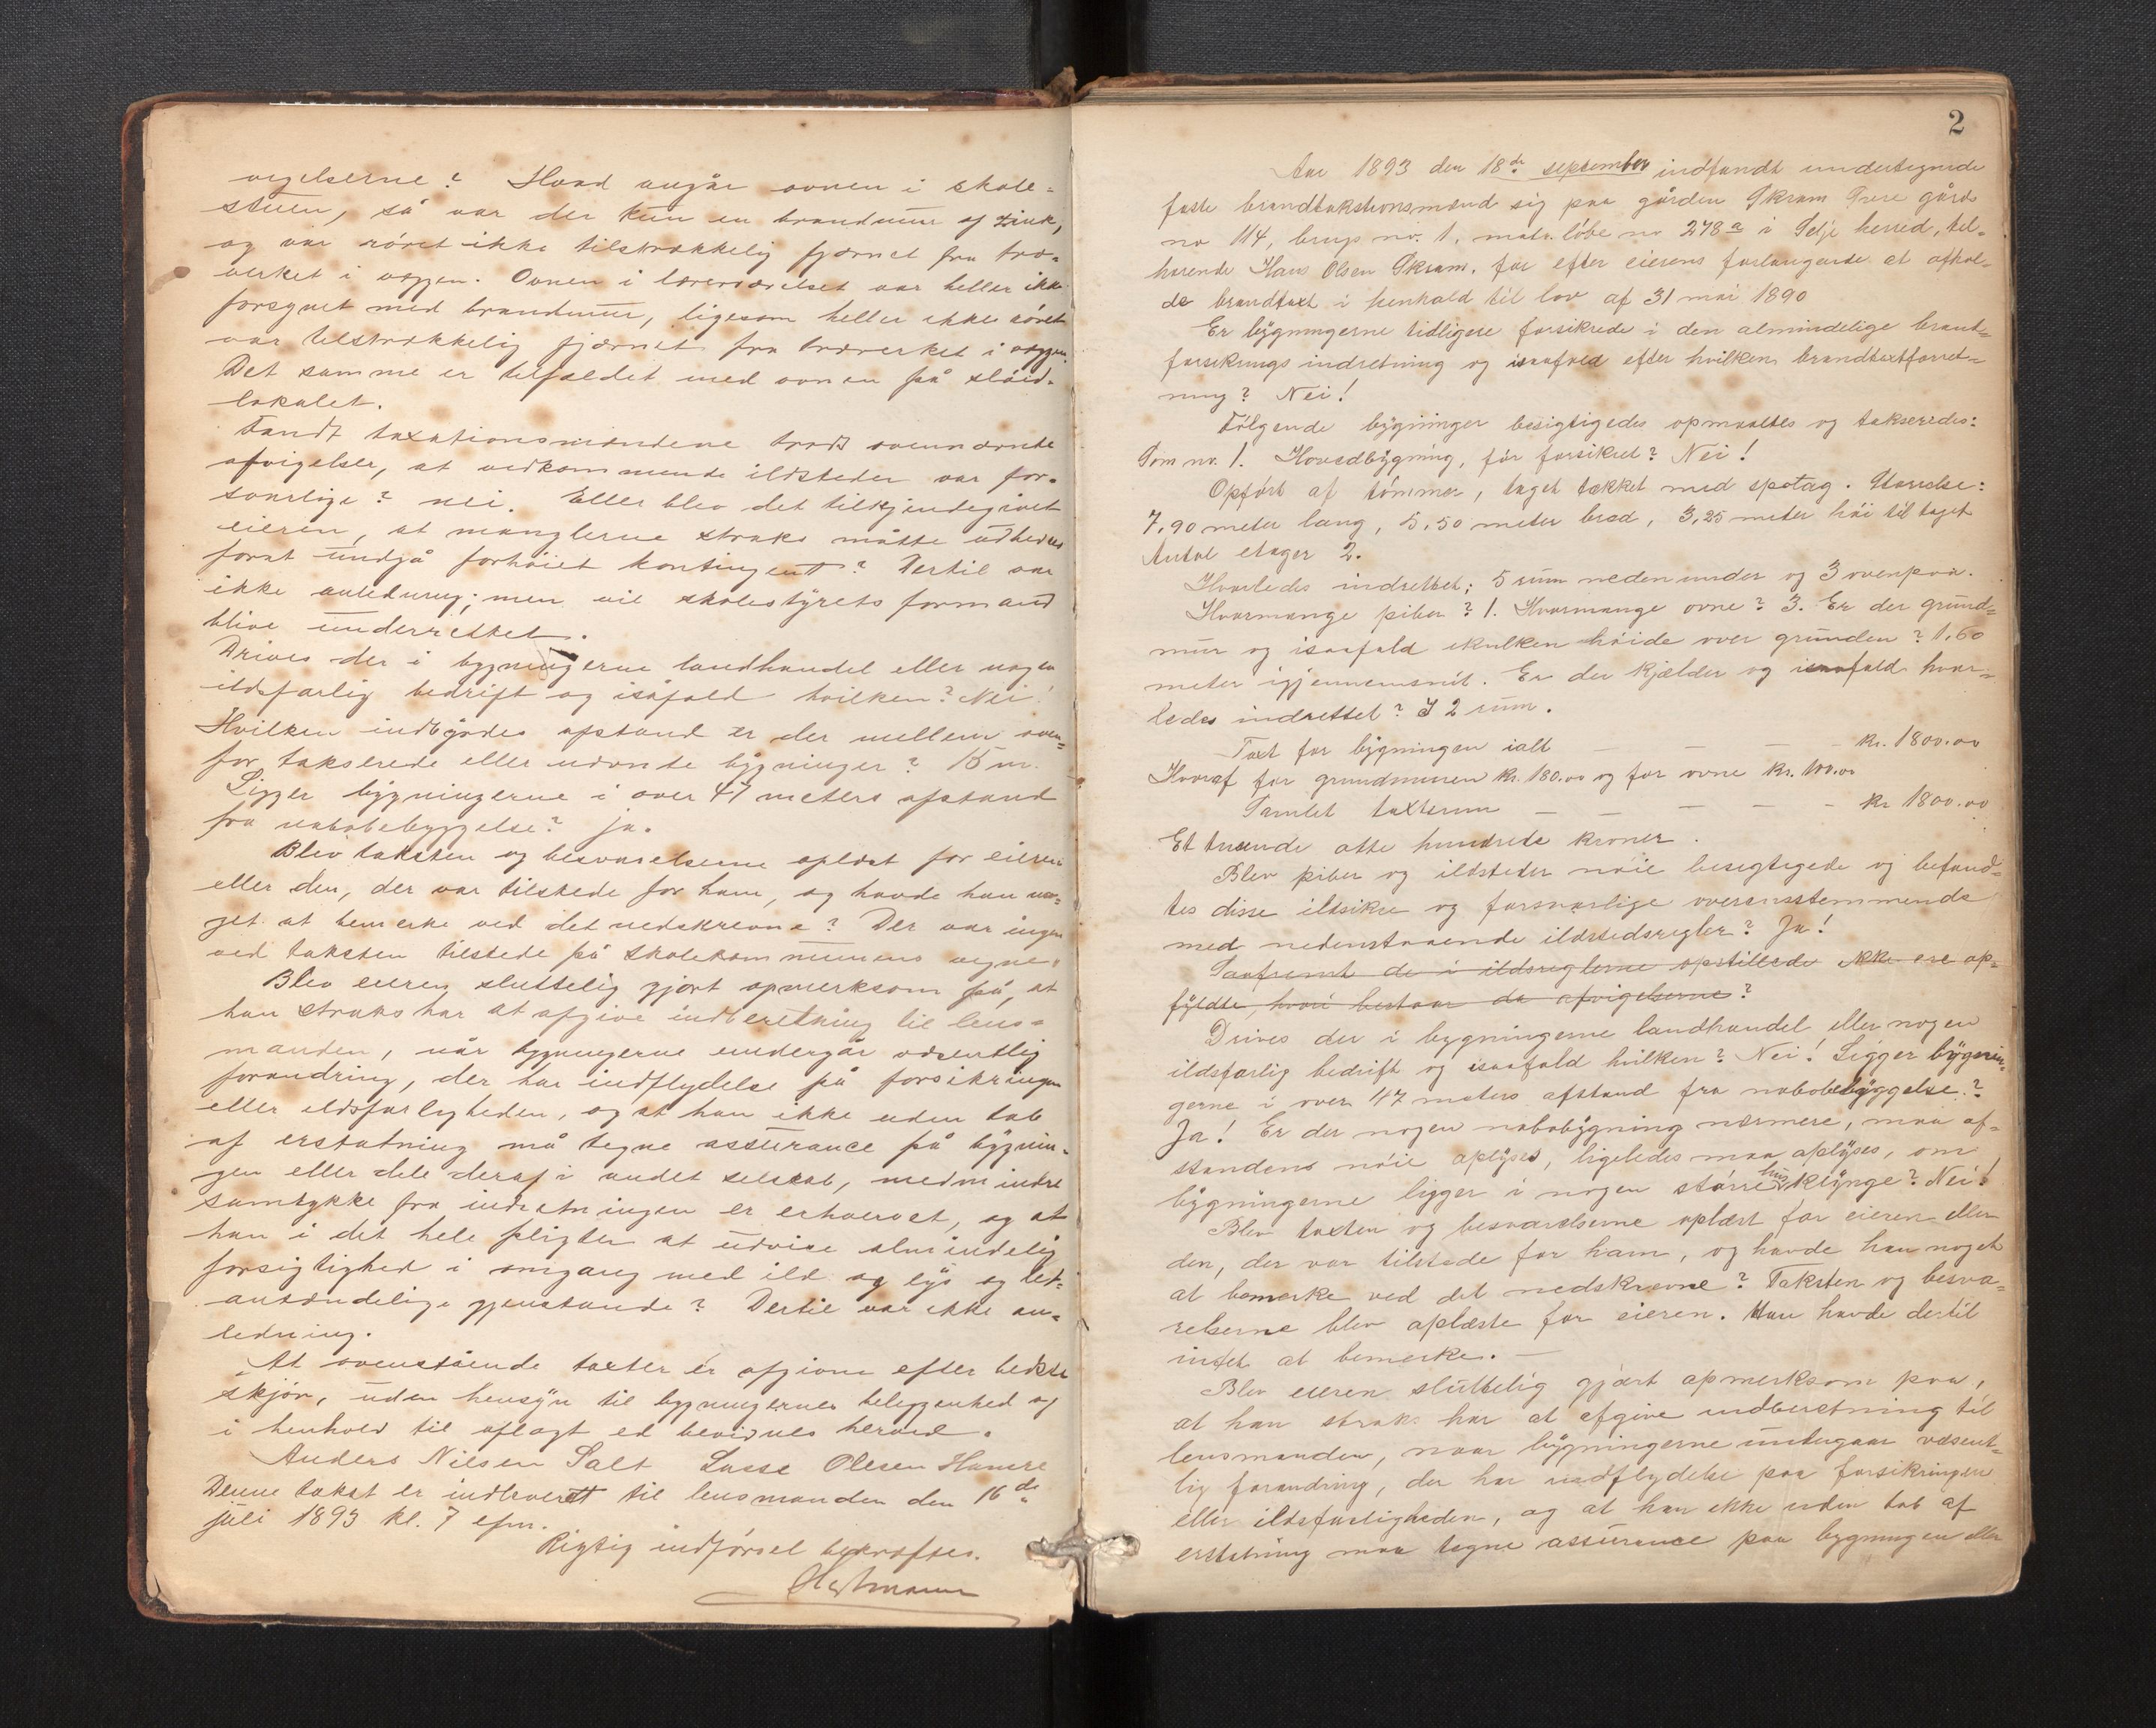 vigelserne? Hvad angår ovnen i skole-
stuen, så var der kun en brandmur af zink,
og var röret ikke tilstrækkelig fjærnet fra træ-
verket i væggen. Ovnen i lærerværelset var heller ikke
forsynet med brandmur, ligesom heller ikke röret
var tilstrækkelig fjærnet fra træverket i væggen.
Det samme er tilfældet med ovnen på slöid-
lokalet.
Fandt taxationsmændene trods ovennævnte
afvigelser, at vedkommende ildsteder var for-
svarlige? nei. Eller blev det tilkjendegivet
eieren, at manglerne straks måtte udbedres
forat undgå forhöiet kontingent? Dertil var
ikke anledning; men vil skolestyrets formand
blive underrettet.
Drives der i bygningerne landhandel eller nogen
ildsfarlig bedrift og isåfald hvilken? Nei!
Hvilken indbyrdes afstand er der mellem oven-
for takserede eller nævnte bygninger? 15 m.
Ligger bygningerne i over 47 meters afstand
fra nabobebyggelse? ja.
Blev taksten og besvarelserne oplæst for eieren
eller den, der var tilstede for ham, og havde han no-
get at bemerke ved det nedskrevne? Der var ingen
ved taksten tilstede på skolekommunens vegne.
Blev eieren sluttelig gjort opmerksom på, at
han straks har at afgive indberetning til lens-
manden, når bygningerne undergår væsentlig
forandring, der har indflydelse på forsikringen
eller ildsfarligheden, og at han ikke uden tab
af erstatning må tegne assurance på bygnin-
gen eller dele deraf i andet selskab, medmindre
samtykke fra indretningen er erhvervet, og at
han i det hele pligter at udvise almindelig
forsigtighed i omgang med ild og lys og let-
antændelige gjenstande? Dertil var ikke an-
ledning.
At ovenstående taxter er afgivne efter bedste
skjön, uden hensyn til bygningernes beliggenhed og
i henhold til aflagt ed bevidnes herved.
Anders Nilsen Salt Lasse Olesen Hamre
Denne takst er indleveret til lensmanden den 16de
juli 1893 kl. 7 efm.
Rigtig indförsel bekræftes.
2
Aar 1893 den 18de september indfandt undertegnede
faste brandtakstionsmænd sig paa gården Skram Övre gårds
no 114, brugs no. 1, matr. löbe no 278a i Selje herred, til-
hörende Hans Olsen Skram, for efter eierens forlangende at afhol-
de brandtaxt i henhold til lov af 31 mai 1890
Er bygningerne tidligere forsikrede i den almindelige brand-
forsikrings indretning og isaafald efter hvilken brandtaxtforret-
ning? Nei!
Fölgende bygninger besigtigedes opmaaltes og takseredes:
Som no. 1. Hovedbygning, för forsikret? Nei!
Opfört af tömmer, taget tækket med spotag. Störelse:
7,90 meter lang, 5,50 meter bred, 3,25 meter höi til taget
Antal etager 2.
Hvorledes indrettet: 5 rum neden under og 3 ovenpaa.
Hvormange piber? 1. Hvormange ovne? 3. Er der grund-
mur og isaafald hvilken höide over grunden? 1,60
meter igjennemsnit. Er der kjælder og isaafald hvor-
ledes indrettet? I 2 rum.
Taxt for bygningen ialt — — — — kr. 1800.00
Hvoraf for grundmuren kr. 180.00 og for ovne kr. 100.00
Samlet taxtsum — — — — — kr 1800.00
Et tusende otte hundrede kroner.
Blev piber og ildsteder nöie besigtigede og befand-
tes disse ildsikre og forsvarlige overensstemmende
med nedenstaaende ildstedsregler? Ja!
Saafremt de i ildsreglerne opstillede ikke ere op-
fyldte, hvori bestaar da afvigelserne?
Drives der i bygningerne landhandel eller nogen
ildsfarlig bedrift og isaafald hvilken? Nei! Ligger bygnin-
gerne i over 47 meters afstand fra nabobebyggelse?
Ja! Er der nogen nabobygning nærmere, maa af-
standens nöie oplyses, ligeledes maa oplyses, om
bygningerne ligger i nogen större husklynge? Nei!
Blev taxten og besvarelserne oplæst for eieren eller
den, der var tilstede for ham, og havde han noget
at bemerke ved det nedskrevne? Taksten og besva-
relserne blev oplæste for eieren. Han havde dertil
intet at bemerke. —
Blev eieren sluttelig gjört opmerksom paa,
at han straks har at afgive indberetning til
lensmanden, naar bygningerne undergaar væsent-
lig forandring, der har indflydelse paa forsikringen
eller ildsfarligheden, og at han ikke uden tab af
erstatning maa tegne assurance paa bygningen eller